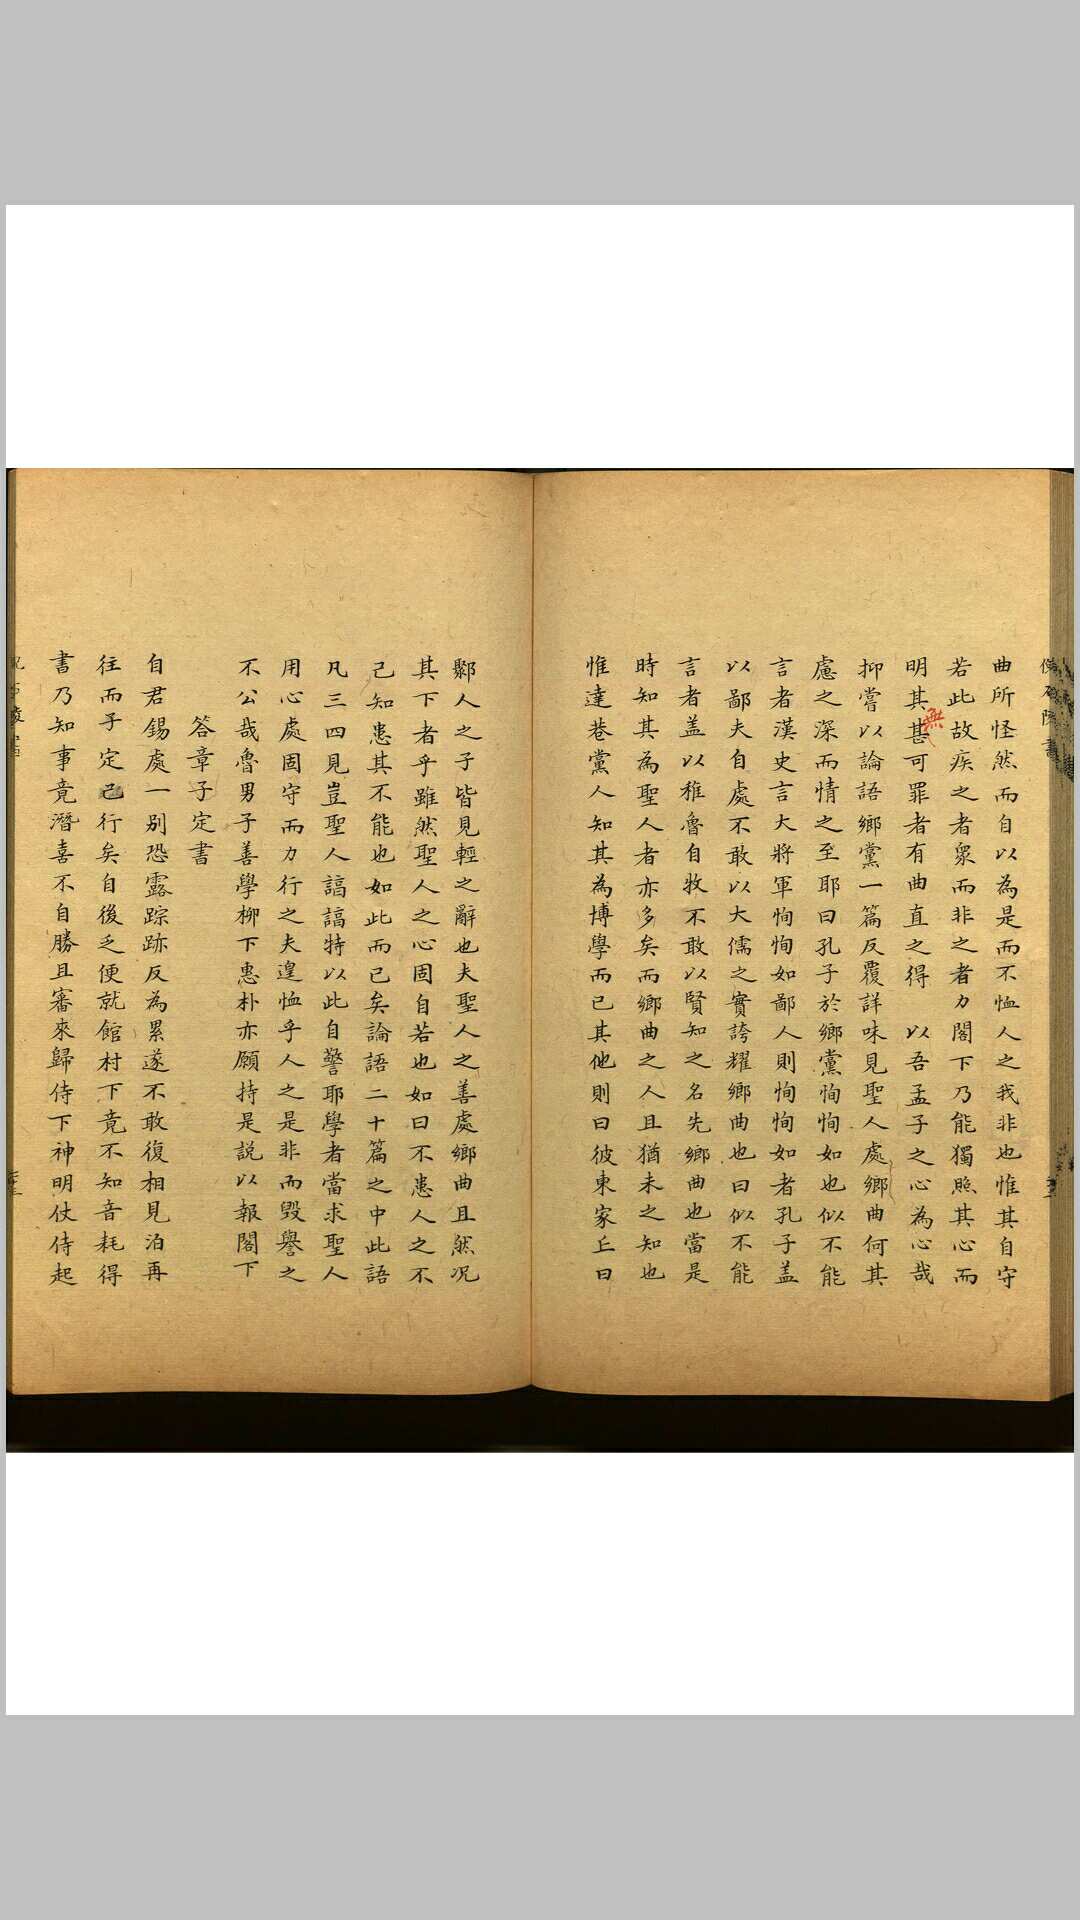 曲所怪然而自以為是而不恤人之我非也惟其自守
若此故疾之者衆而非之者力閣下乃能獨照其心而
明其甚可罪者有曲直之得 以吾孟子之心為心哉
無
抑嘗以論語鄉黨一篇反覆詳味見聖人處鄉曲何其
慮之深而情之至耶曰孔子於鄉黨恂恂如也似不能
言者漢史言大將軍恂恂如鄙人則恂恂如者孔子盖
以鄙夫自處不敢以大儒之實誇耀鄉曲也曰似不能
言者盖以稚魯自牧不敢以賢知之名先鄉曲也當是
時知其為聖人者亦多矣而鄉曲之人且猶未之知也
惟達巷黨人知其為博學而已其他則曰彼東家丘曰
鄹人之子皆見輕之辭也夫聖人之善處鄉曲且然况
其下者乎雖然聖人之心固自若也如曰不患人之不
己知患其不能也如此而已矣論語二十篇之中此語
凡三四見豈聖人諄諄特以此自警耶學者當求聖人
用心處固守而力行之夫遑恤乎人之是非而毀譽之
不公哉魯男子善學柳下惠朴亦願持是説以報閣下
答章子定書
自君錫處一别恐露踪跡反為累遂不敢復相見泊再
往而子定已行矣自後乏便就館村下竟不知音耗得
書乃知事竟潛喜不自勝且審來歸侍下神明仗侍起